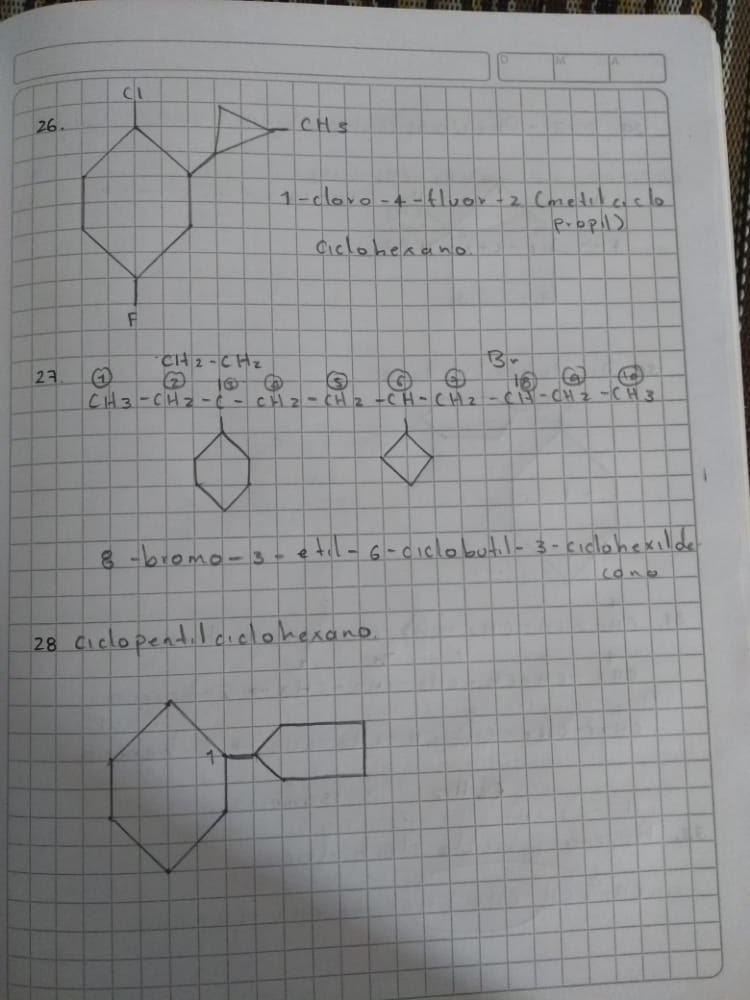 D M A
Cl
26.
CH3
1-cloro-4-fluor-2 (metilciclo
propil)
ciclohexano.
F
CH2-CH2 Br
27. ① ② ③ ④ ⑤ ⑥ ⑦ ⑧ ⑨ ⑩
CH3-CH2-C-CH2-CH2-CH-CH2-CH-CH2-CH3
8-bromo-3-etil-6-ciclobutil-3-ciclohexilde
cano
28 Ciclopentilciclohexano.
1